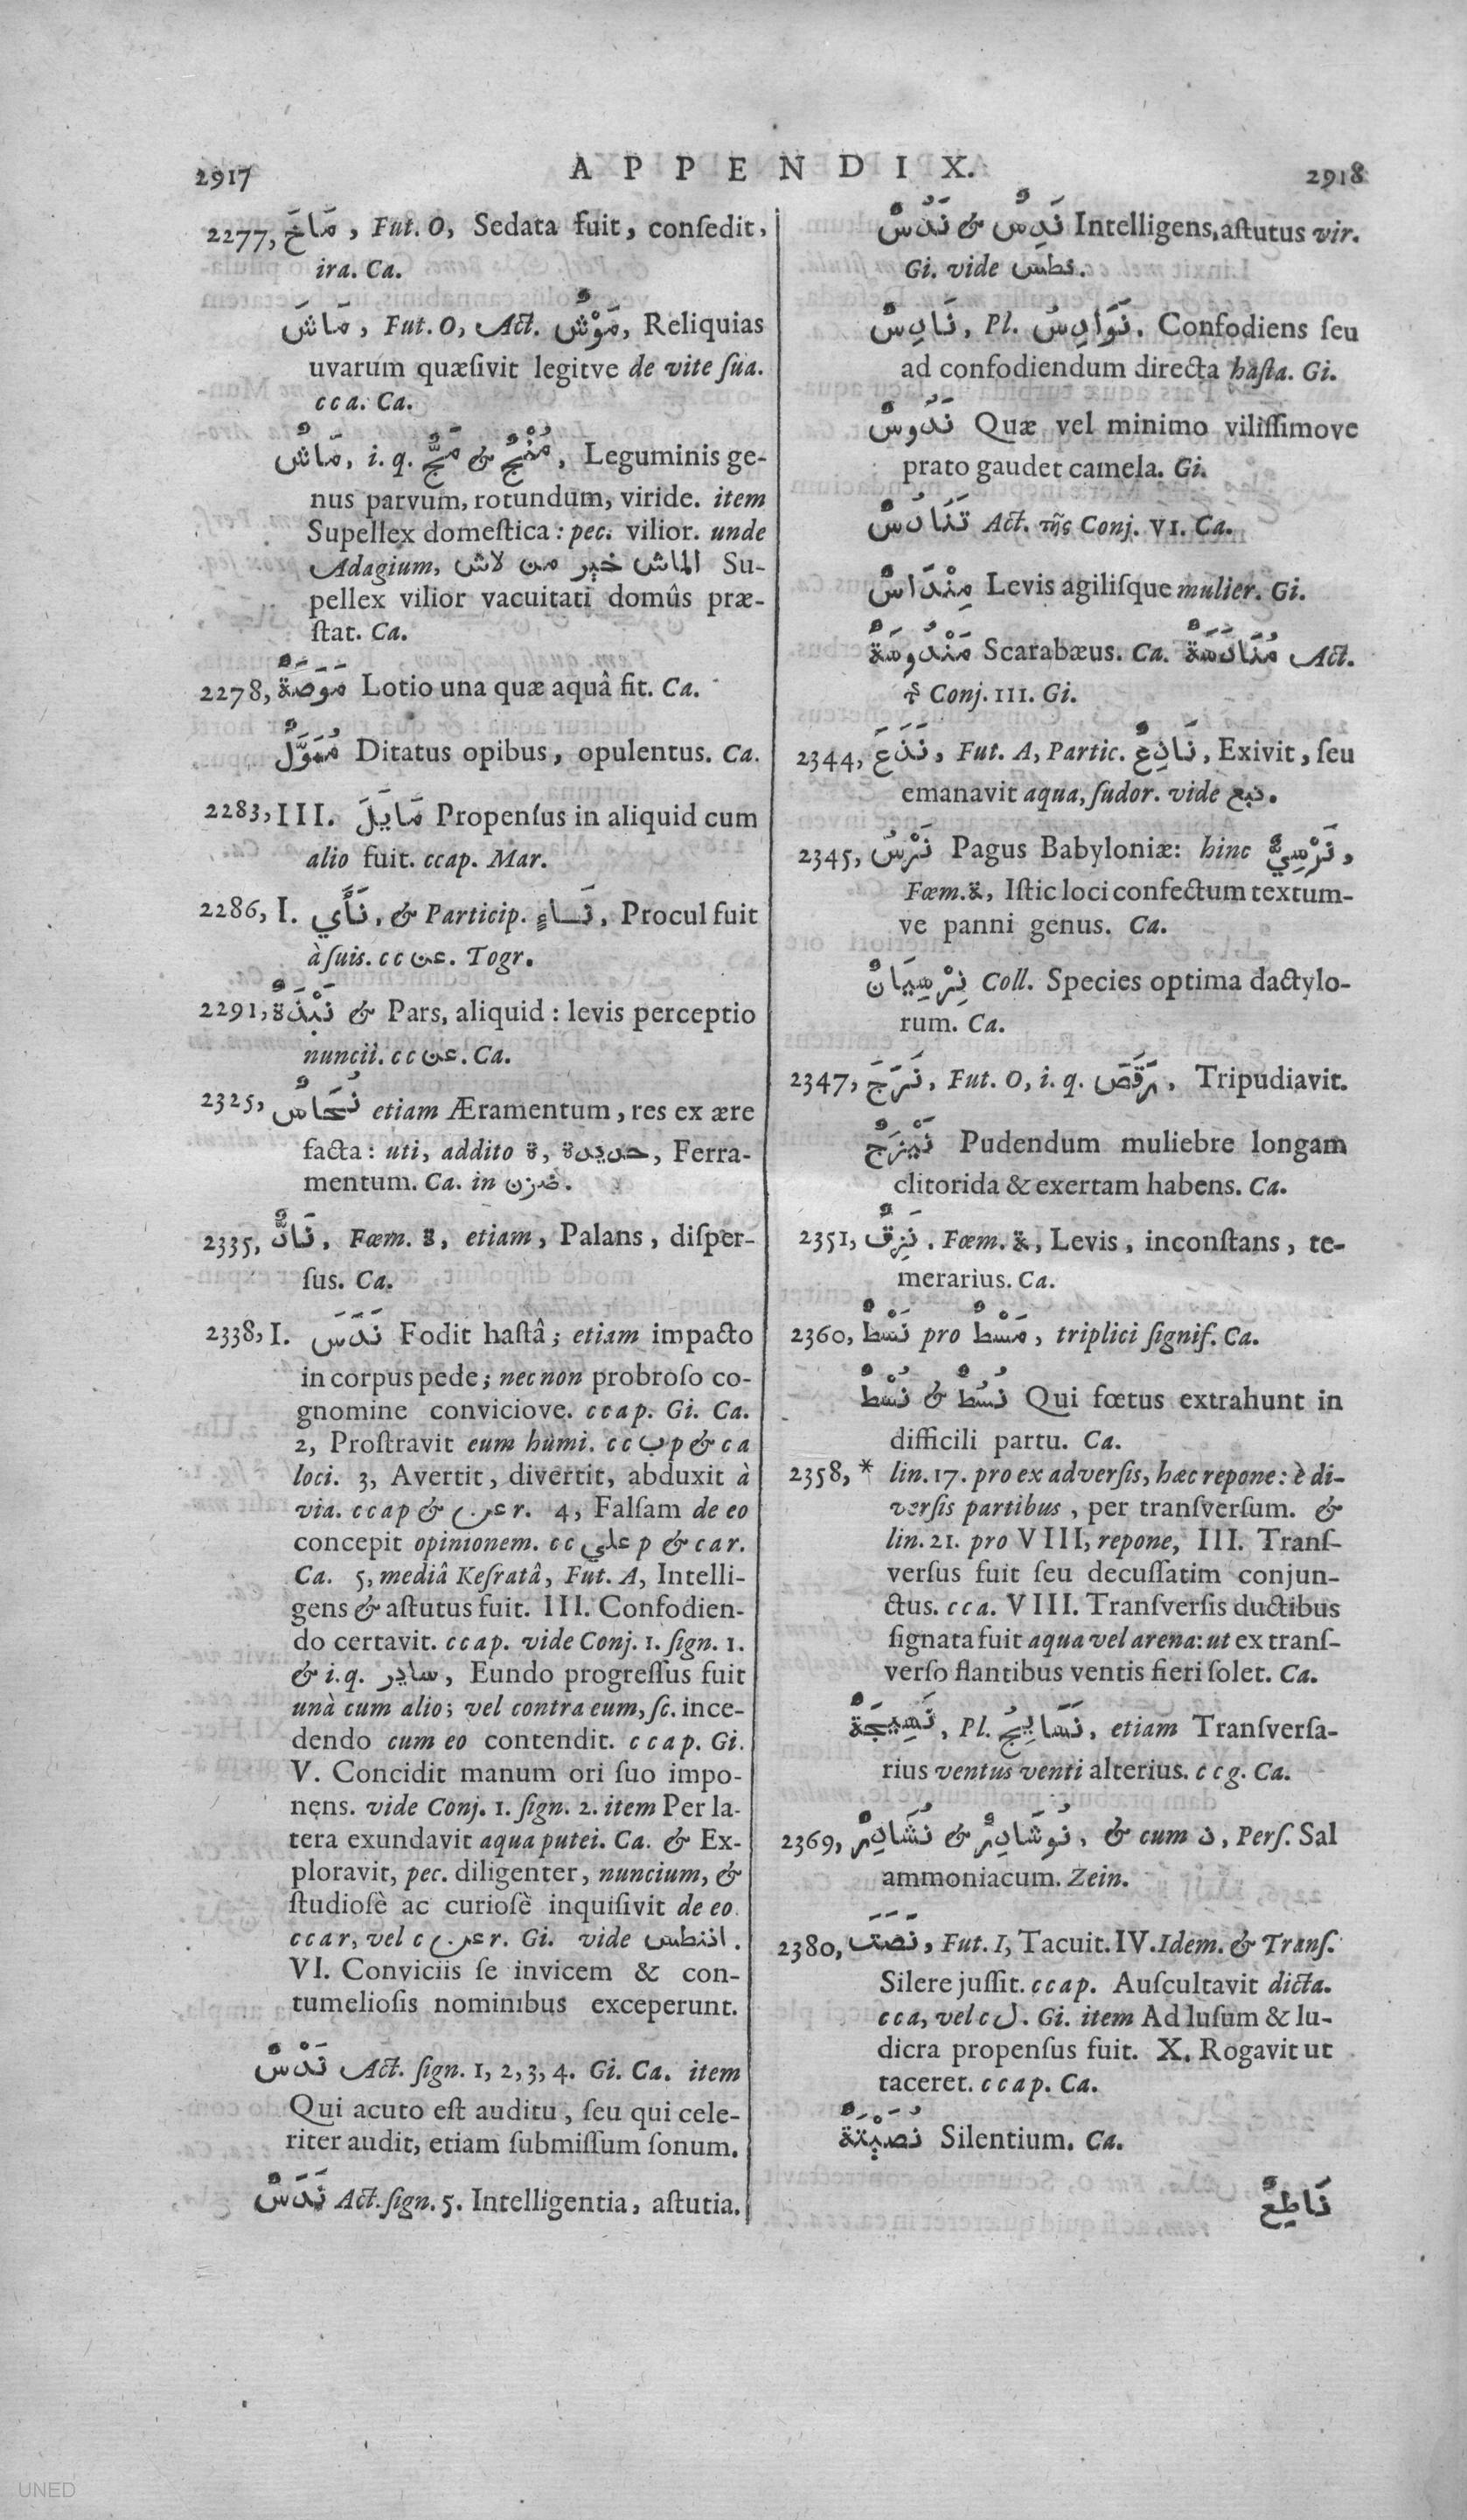 2917 APPENDIX. 2918
2277, مَاخَ, Fut. O, Sedata fuit, conſedit,
ira. Ca.
مَاشَ, Fut. O, Act. مَوْشٌ, Reliquias
uvarum quæſivit legitve de vite ſua.
cca. Ca.
مَاشٌ, i. q. مَجٌّ & مُنْجٌ, Leguminis ge-
nus parvum, rotundum, viride. item
Supellex domeſtica: pec. vilior. unde
Adagium, الماش خير من لاش Su-
pellex vilior vacuitati domûs præ-
ſtat. Ca.
2278, مَوَصَةٌ Lotio una quæ aquâ fit. Ca.
مُمَوَّلٌ Ditatus opibus, opulentus. Ca.
2283, III. مَايَلَ Propenſus in aliquid cum
alio fuit. ccap. Mar.
2286, I. نَأَي, & Particip. نَاءٍ, Procul fuit
à ſuis. cc عن. Togr.
2291, نَبْذَةٌ & Pars, aliquid: levis perceptio
nuncii. cc عن. Ca.
2325, نُحَاسٌ etiam Æramentum, res ex ære
facta: uti, addito ة, حديدة, Ferra-
mentum. Ca. in ضزن.
2335, نَادٌّ, Fœm. ة, etiam, Palans, diſper-
ſus. Ca.
2338, I. نَدَسَ Fodit haſtâ; etiam impacto
in corpus pede; nec non probroſo co-
gnomine conviciove. ccap. Gi. Ca.
2, Proſtravit eum humi. cc ب p & ca
loci. 3, Avertit, divertit, abduxit à
via. ccap & عن r. 4, Falſam de eo
concepit opinionem. cc علي p & car.
Ca. 5, mediâ Keſratâ, Fut. A, Intelli-
gens & aſtutus fuit. III. Confodien-
do certavit. ccap. vide Conj. 1. ſign. 1.
& i. q. سادر, Eundo progreſſus fuit
unà cum alio; vel contra eum, ſc. ince-
dendo cum eo contendit. ccap. Gi.
V. Concidit manum ori ſuo impo-
nens. vide Conj. 1. ſign. 2. item Per la-
tera exundavit aqua putei. Ca. & Ex-
ploravit, pec. diligenter, nuncium, &
ſtudioſè ac curioſè inquiſivit de eo.
ccar, vel c عن r. Gi. vide اننطس.
VI. Conviciis ſe invicem & con-
tumelioſis nominibus exceperunt.
نَدْسٌ Act. ſign. 1, 2, 3, 4. Gi. Ca. item
Qui acuto eſt auditu, ſeu qui cele-
riter audit, etiam ſubmiſſum ſonum.
نَدَسٌ Act. ſign. 5. Intelligentia, aſtutia.
نَدُسٌ & نَدِسٌ Intelligens, aſtutus vir.
Gi. vide نطس.
نَادِسٌ, Pl. نَوَادِسُ, Confodiens ſeu
ad confodiendum directa haſta. Gi.
نَدُوسٌ Quæ vel minimo viliſſimove
prato gaudet camela. Gi.
تَنَادُسٌ Act. τῆς Conj. VI. Ca.
مِنْدَاسٌ Levis agiliſque mulier. Gi.
مَنْدُوسَةٌ Scarabæus. Ca. مُنَادَسَةٌ Act.
τῆς Conj. III. Gi.
2344, نَذَعَ, Fut. A, Partic. نَاذِعٌ, Exivit, ſeu
emanavit aqua, ſudor. vide نبع.
2345, نَرْسُ Pagus Babyloniæ: hinc نَرْسِيٌّ,
Fœm. ة, Iſtic loci confectum textum-
ve panni genus. Ca.
نِرْسِيَانٌ Coll. Species optima dactylo-
rum. Ca.
2347, نَزَجَ, Fut. O, i. q. رَقَصَ, Tripudiavit.
نَيْزَجٌ Pudendum muliebre longam
clitorida & exertam habens. Ca.
2351, نَزِقٌ, Fœm. ة, Levis, inconſtans, te-
merarius. Ca.
2360, نَسْطٌ pro مَسْطٌ, triplici ſignif. Ca.
نُسْطٌ & نُسُطٌ Qui fœtus extrahunt in
difficili partu. Ca.
2358, * lin. 17. pro ex adverſis, hæc repone: è di-
verſis partibus, per tranſverſum. &
lin. 21. pro VIII, repone, III. Tranſ-
verſus fuit ſeu decuſſatim conjun-
ctus. cca. VIII. Tranſverſis ductibus
ſignata fuit aqua vel arena: ut ex tranſ-
verſo flantibus ventis fieri ſolet. Ca.
نَسِيجَةٌ, Pl. نَسَايِجُ, etiam Tranſverſa-
rius ventus venti alterius. ccg. Ca.
2369, نُشَادِرٌ & نُوشَادِرٌ, & cum ذ, Perſ. Sal
ammoniacum. Zein.
2380, نَصَتَ, Fut. I, Tacuit. IV. Idem. & Tranſ.
Silere juſſit. ccap. Auſcultavit dicta.
cca, vel c ل. Gi. item Ad luſum & lu-
dicra propenſus fuit. X. Rogavit ut
taceret. ccap. Ca.
نُصَيْتَةٌ Silentium. Ca.
نَاطِعٌ
UNED